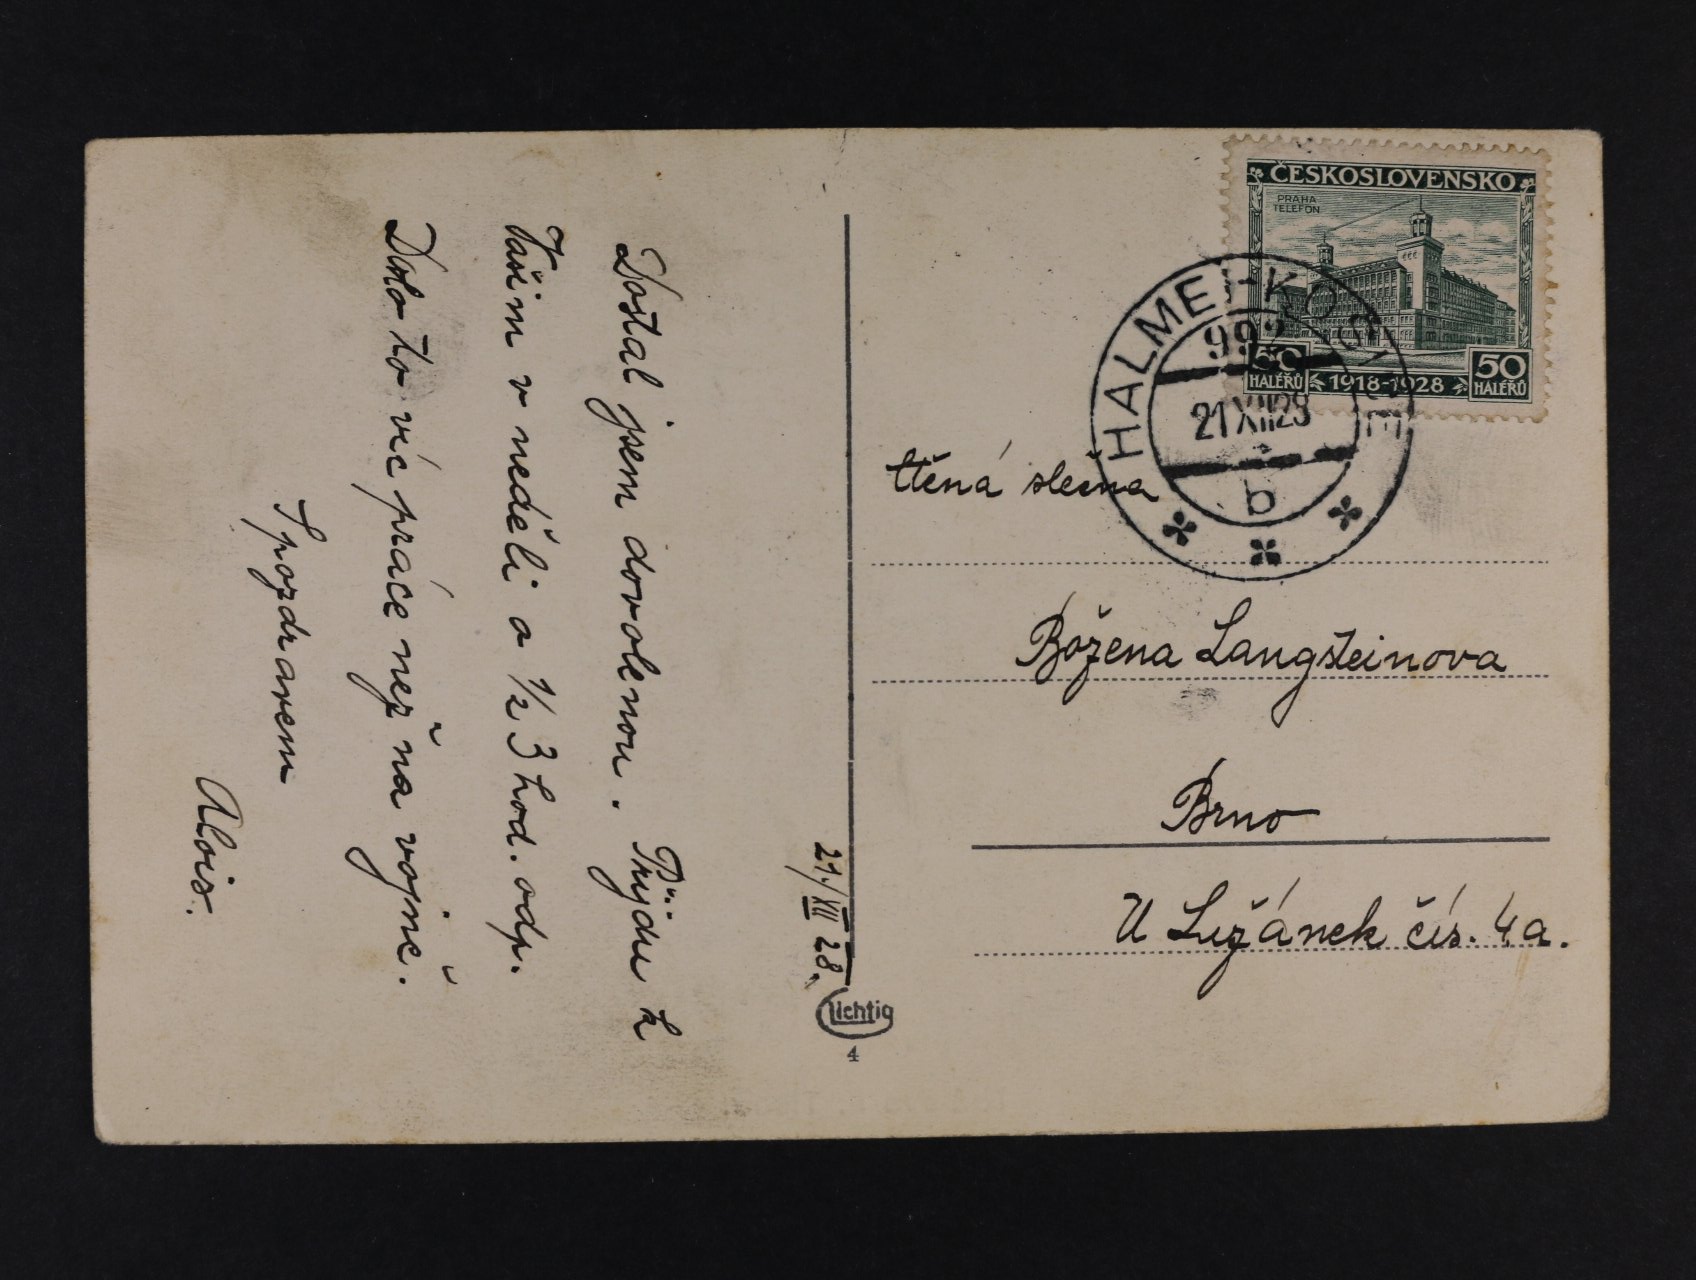 Dostal jsem dovolenou. Přijdu k
Vašim v neděli o ½ 3 hod. odp.
Dalo to víc práce než na vojně.
S pozdravem
Alois.
21./XII 28.
Lichtig
4
ČESKOSLOVENSKO
PRAHA
TELEFON
50 HALÉŘŮ 1918-1928 50 HALÉŘŮ
HALMEI-KOSI
992
21 XII 28
b
Ctěná slečna
Božena Langsteinova
Brno
U Lužánek čís. 4a.